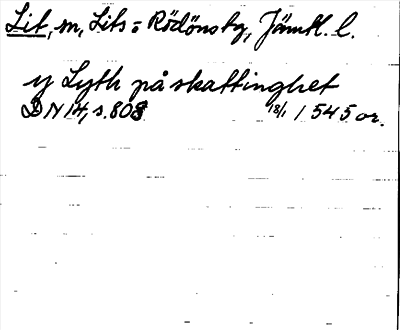 Lit, sn, Lits o Rödöns tg, Jämtl. l.
y Lyth på skattinghet
DN 14, s. 808 18/1 1545 or.